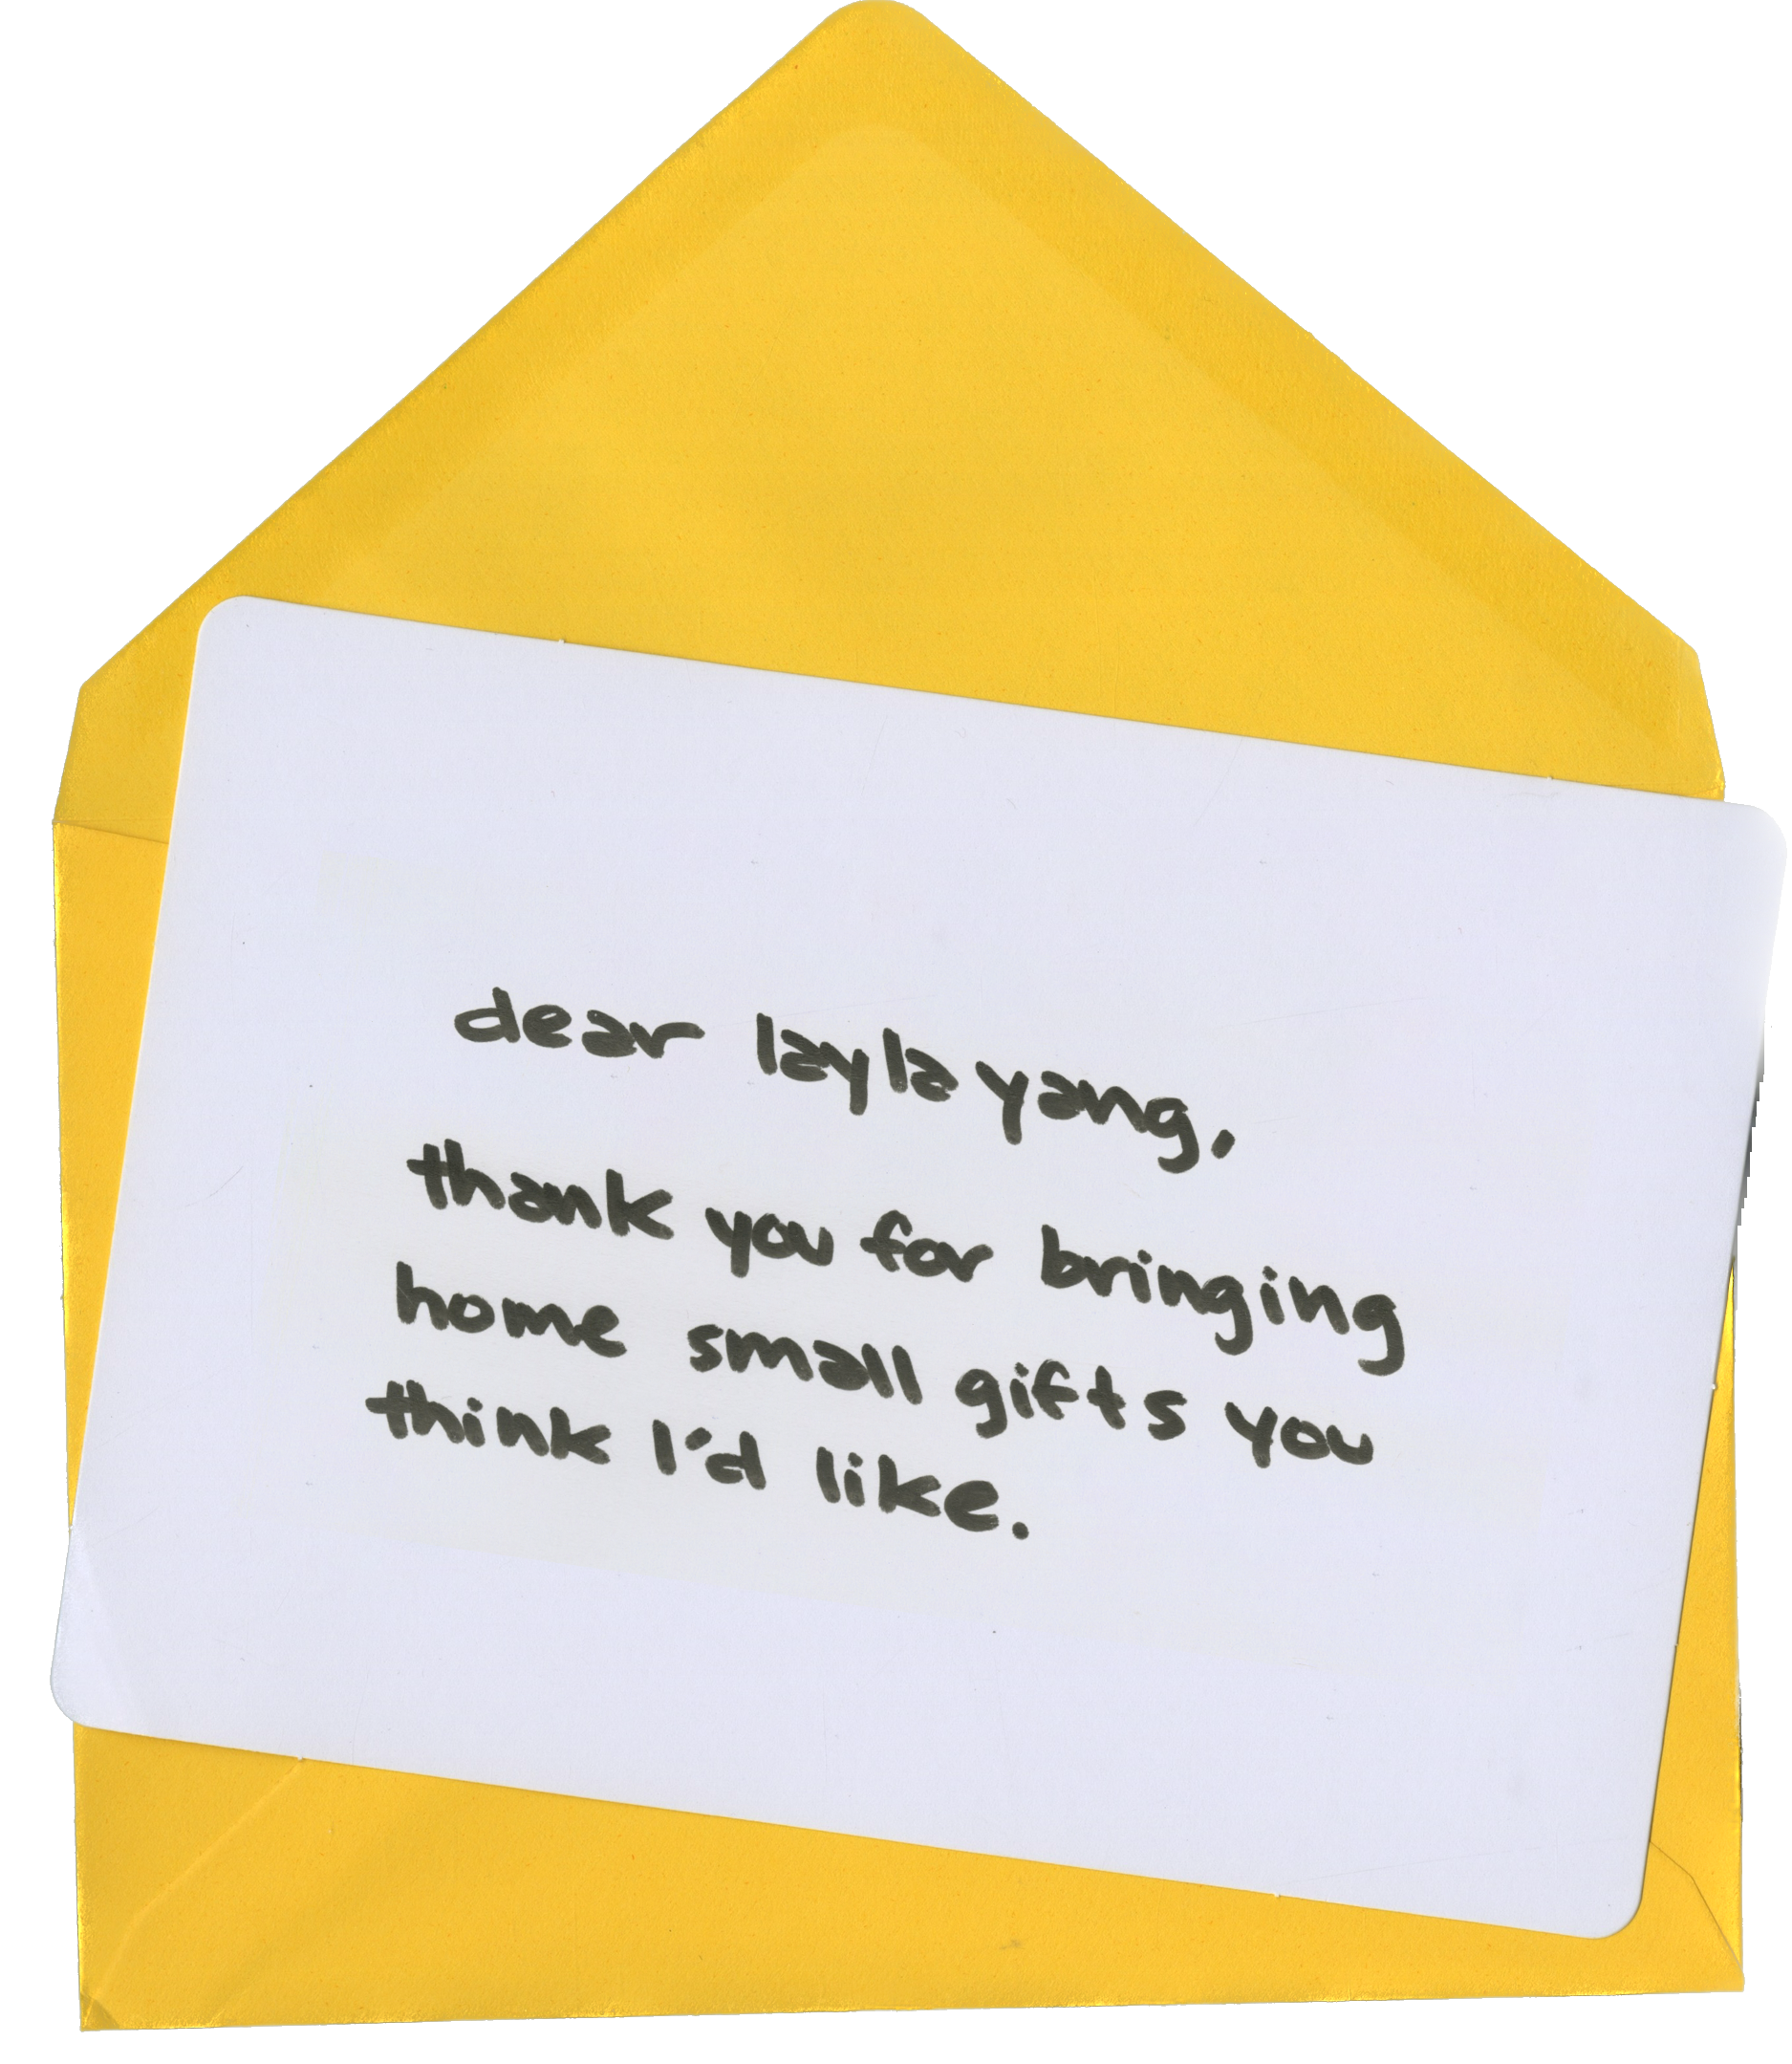 dear layla yang,
thank you for bringing
home small gifts you
think I'd like.